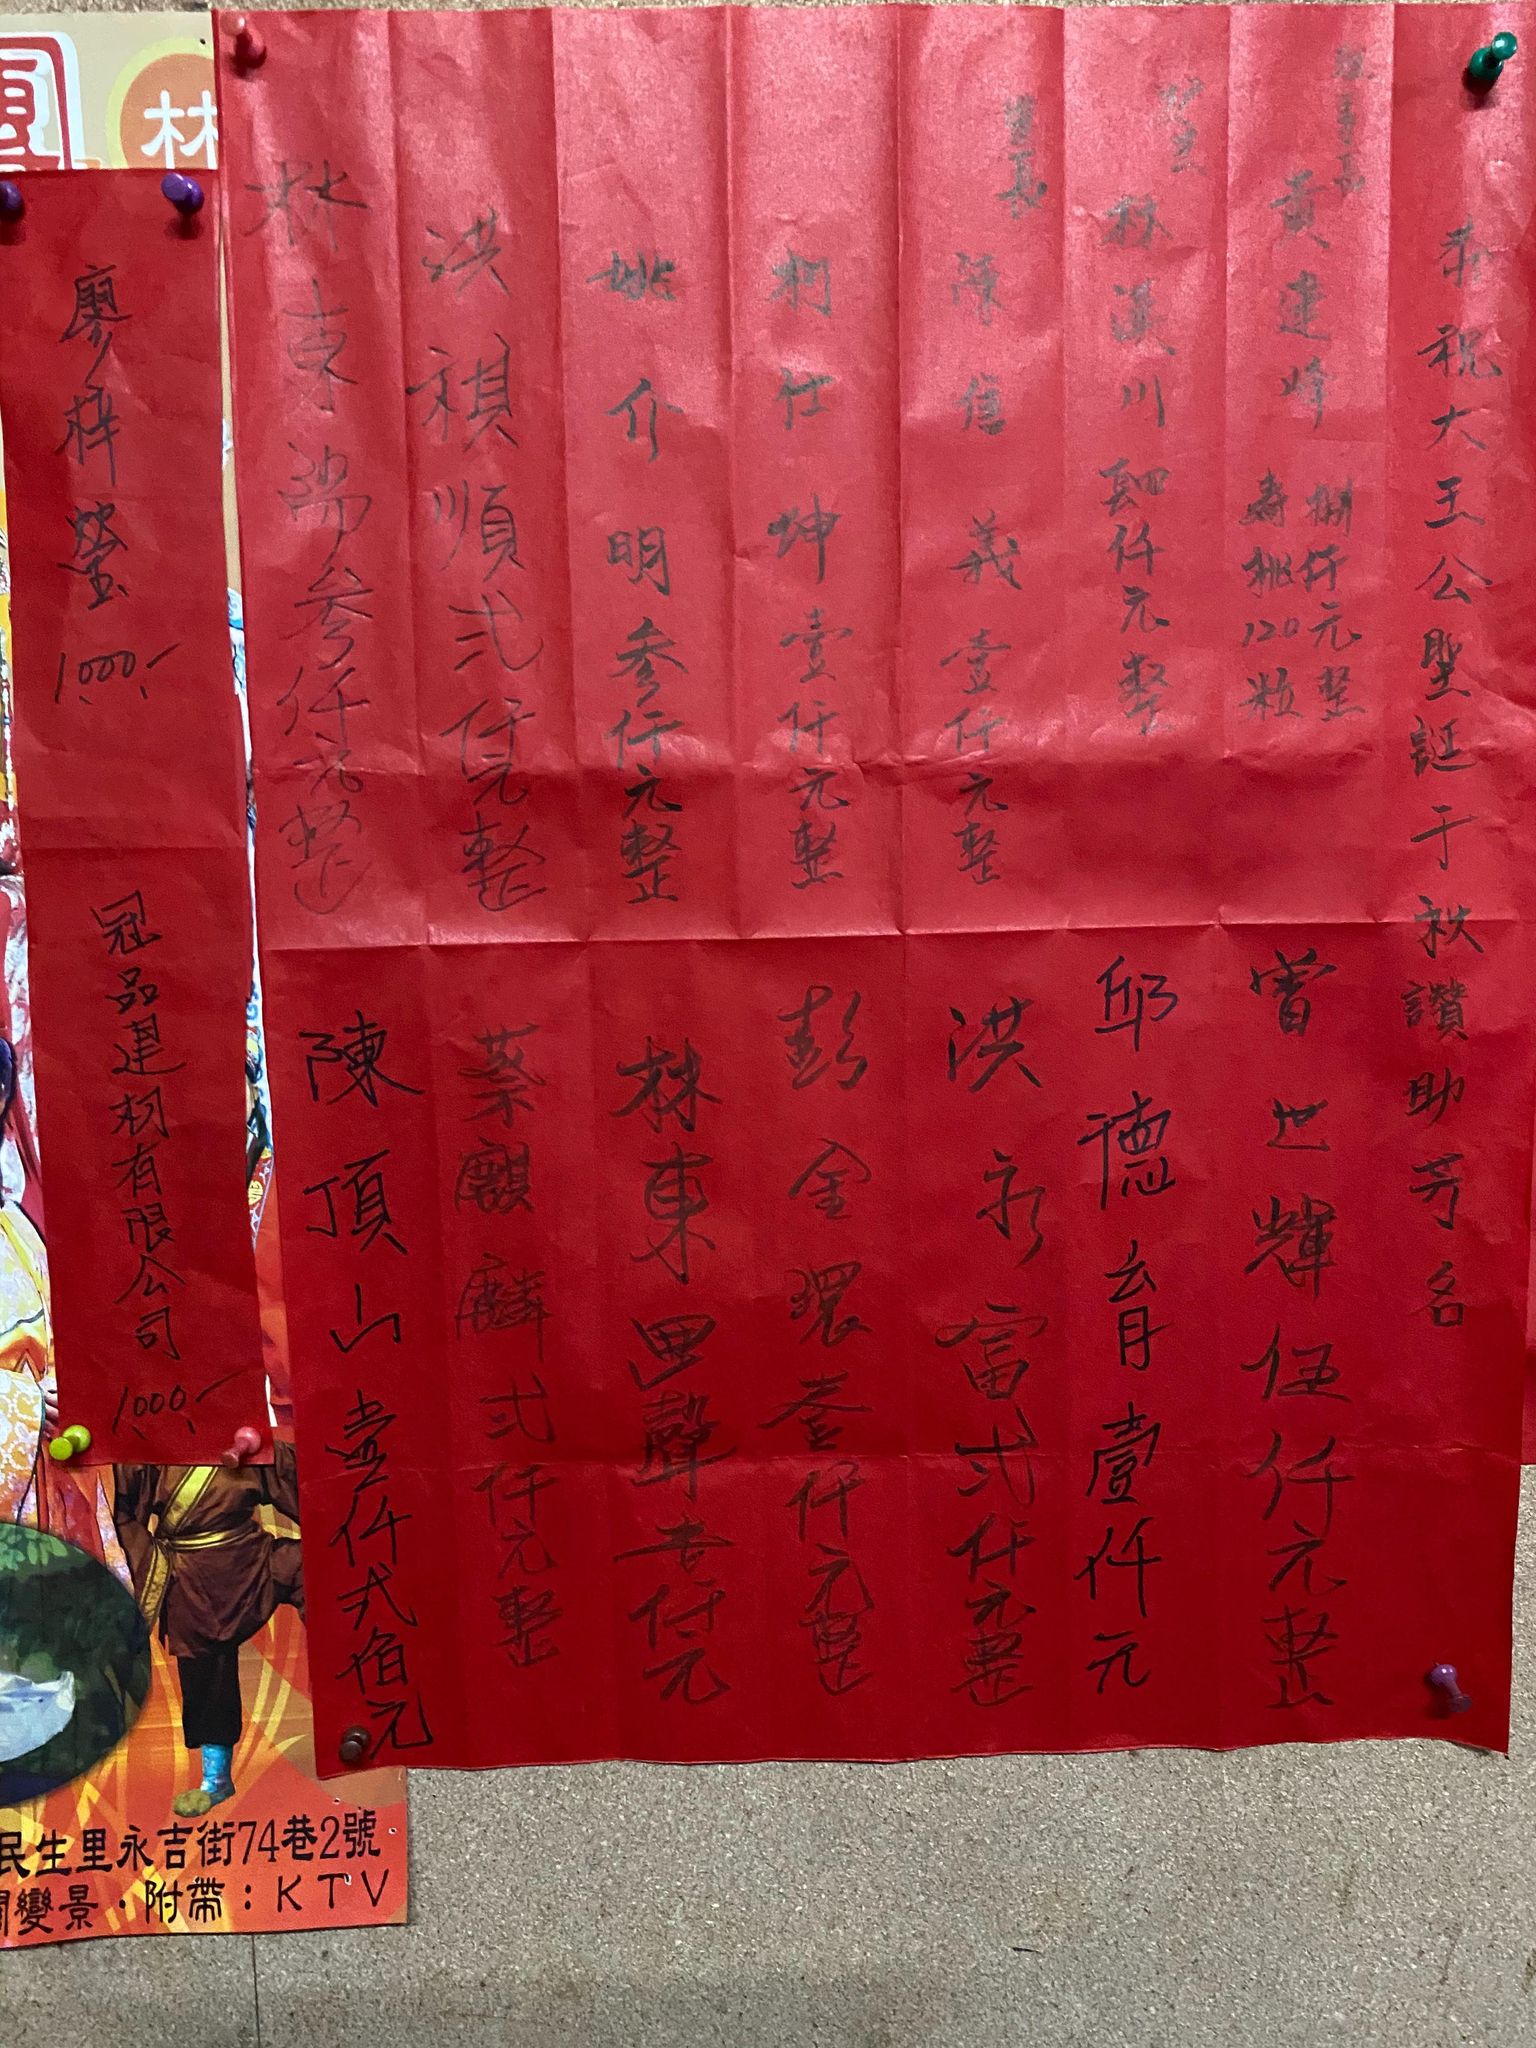 恭祝大王公聖誕千秋讚助芳名
黃建峰 捌仟元整
壽桃120粒
林漢川 肆仟元整
陳信義壹仟元整
柯仕坤壹仟元整
姚介明參仟元整
洪祺順弍仟元整
林東陽參仟元整
曾世輝伍仟元整
邱德育壹仟元
洪永富弍仟元整
彭金環壹仟元整
林東聲壱仟元
蔡麒麟弍仟元整
陳頂山壹仟弍佰元
廖梓瑩
1,000,-
冠品建材有限公司
1000,-
林
民生里永吉街74巷2號
變景·附帶：KTV